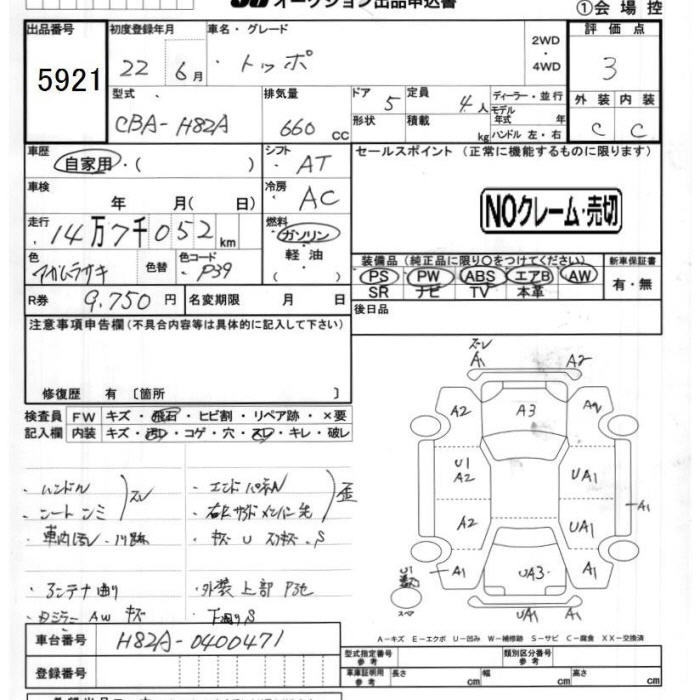 オークション出品申込書
①会場控
出品番号 5921
初度登録年月 22 6月
車名・グレード トッポ
2WD・4WD
評価点 3
型式 CBA-H82A
排気量 660 CC
ドア 5
定員 4人
形状
積載 kg
ディーラー・並行
モデル年式 年式
ハンドル 左・右
外装 内装
C C
車歴 自家用・( )
シフト AT
セールスポイント (正常に機能するものに限ります)
車検 年 月( 日)
冷房 AC
NOクレーム・売切
走行 14万7千052km
燃料 ガソリン・軽油・( )
色 アカムラサキ
色替
色コード P39
装備品 (純正品に限り○をつけてください)
新車保証書
PS PW ABS エアB AW
SR ナビ TV 本革
有・無
R券 9.750円
名変期限 月 日
後日品
注意事項申告欄(不具合内容等は具体的に記入して下さい)
修復歴 有 〔箇所 〕
検査員記入欄
FW キズ・飛石・ヒビ割・リペア跡・×要
内装 キズ・汚れ・コゲ・穴・スレ・キレ・破レ
・ハンドル
・エンドパネル
スレ
歪
・アンテナ曲り
・外装上部
AW キズ
下廻りS
スレ
A1 A2
A2 A3
U1
A2 UA1
A1
A2 UA1
A1 UA3 A1
U1
スペア
UA1 A1
A-キズ E-エクボ U-凹み W-補修跡 S-サビ C-腐食 XX-交換済
車台番号 H82A-0400471
登録番号
型式指定番号 参考
類別区分番号 参考
車庫証明用 参考
長さ cm 幅 cm 高さ cm